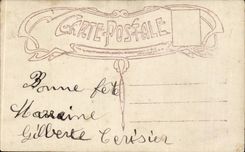 CARTE-POSTALE
Bonne fête
Marraine
Gilberte Cerisier